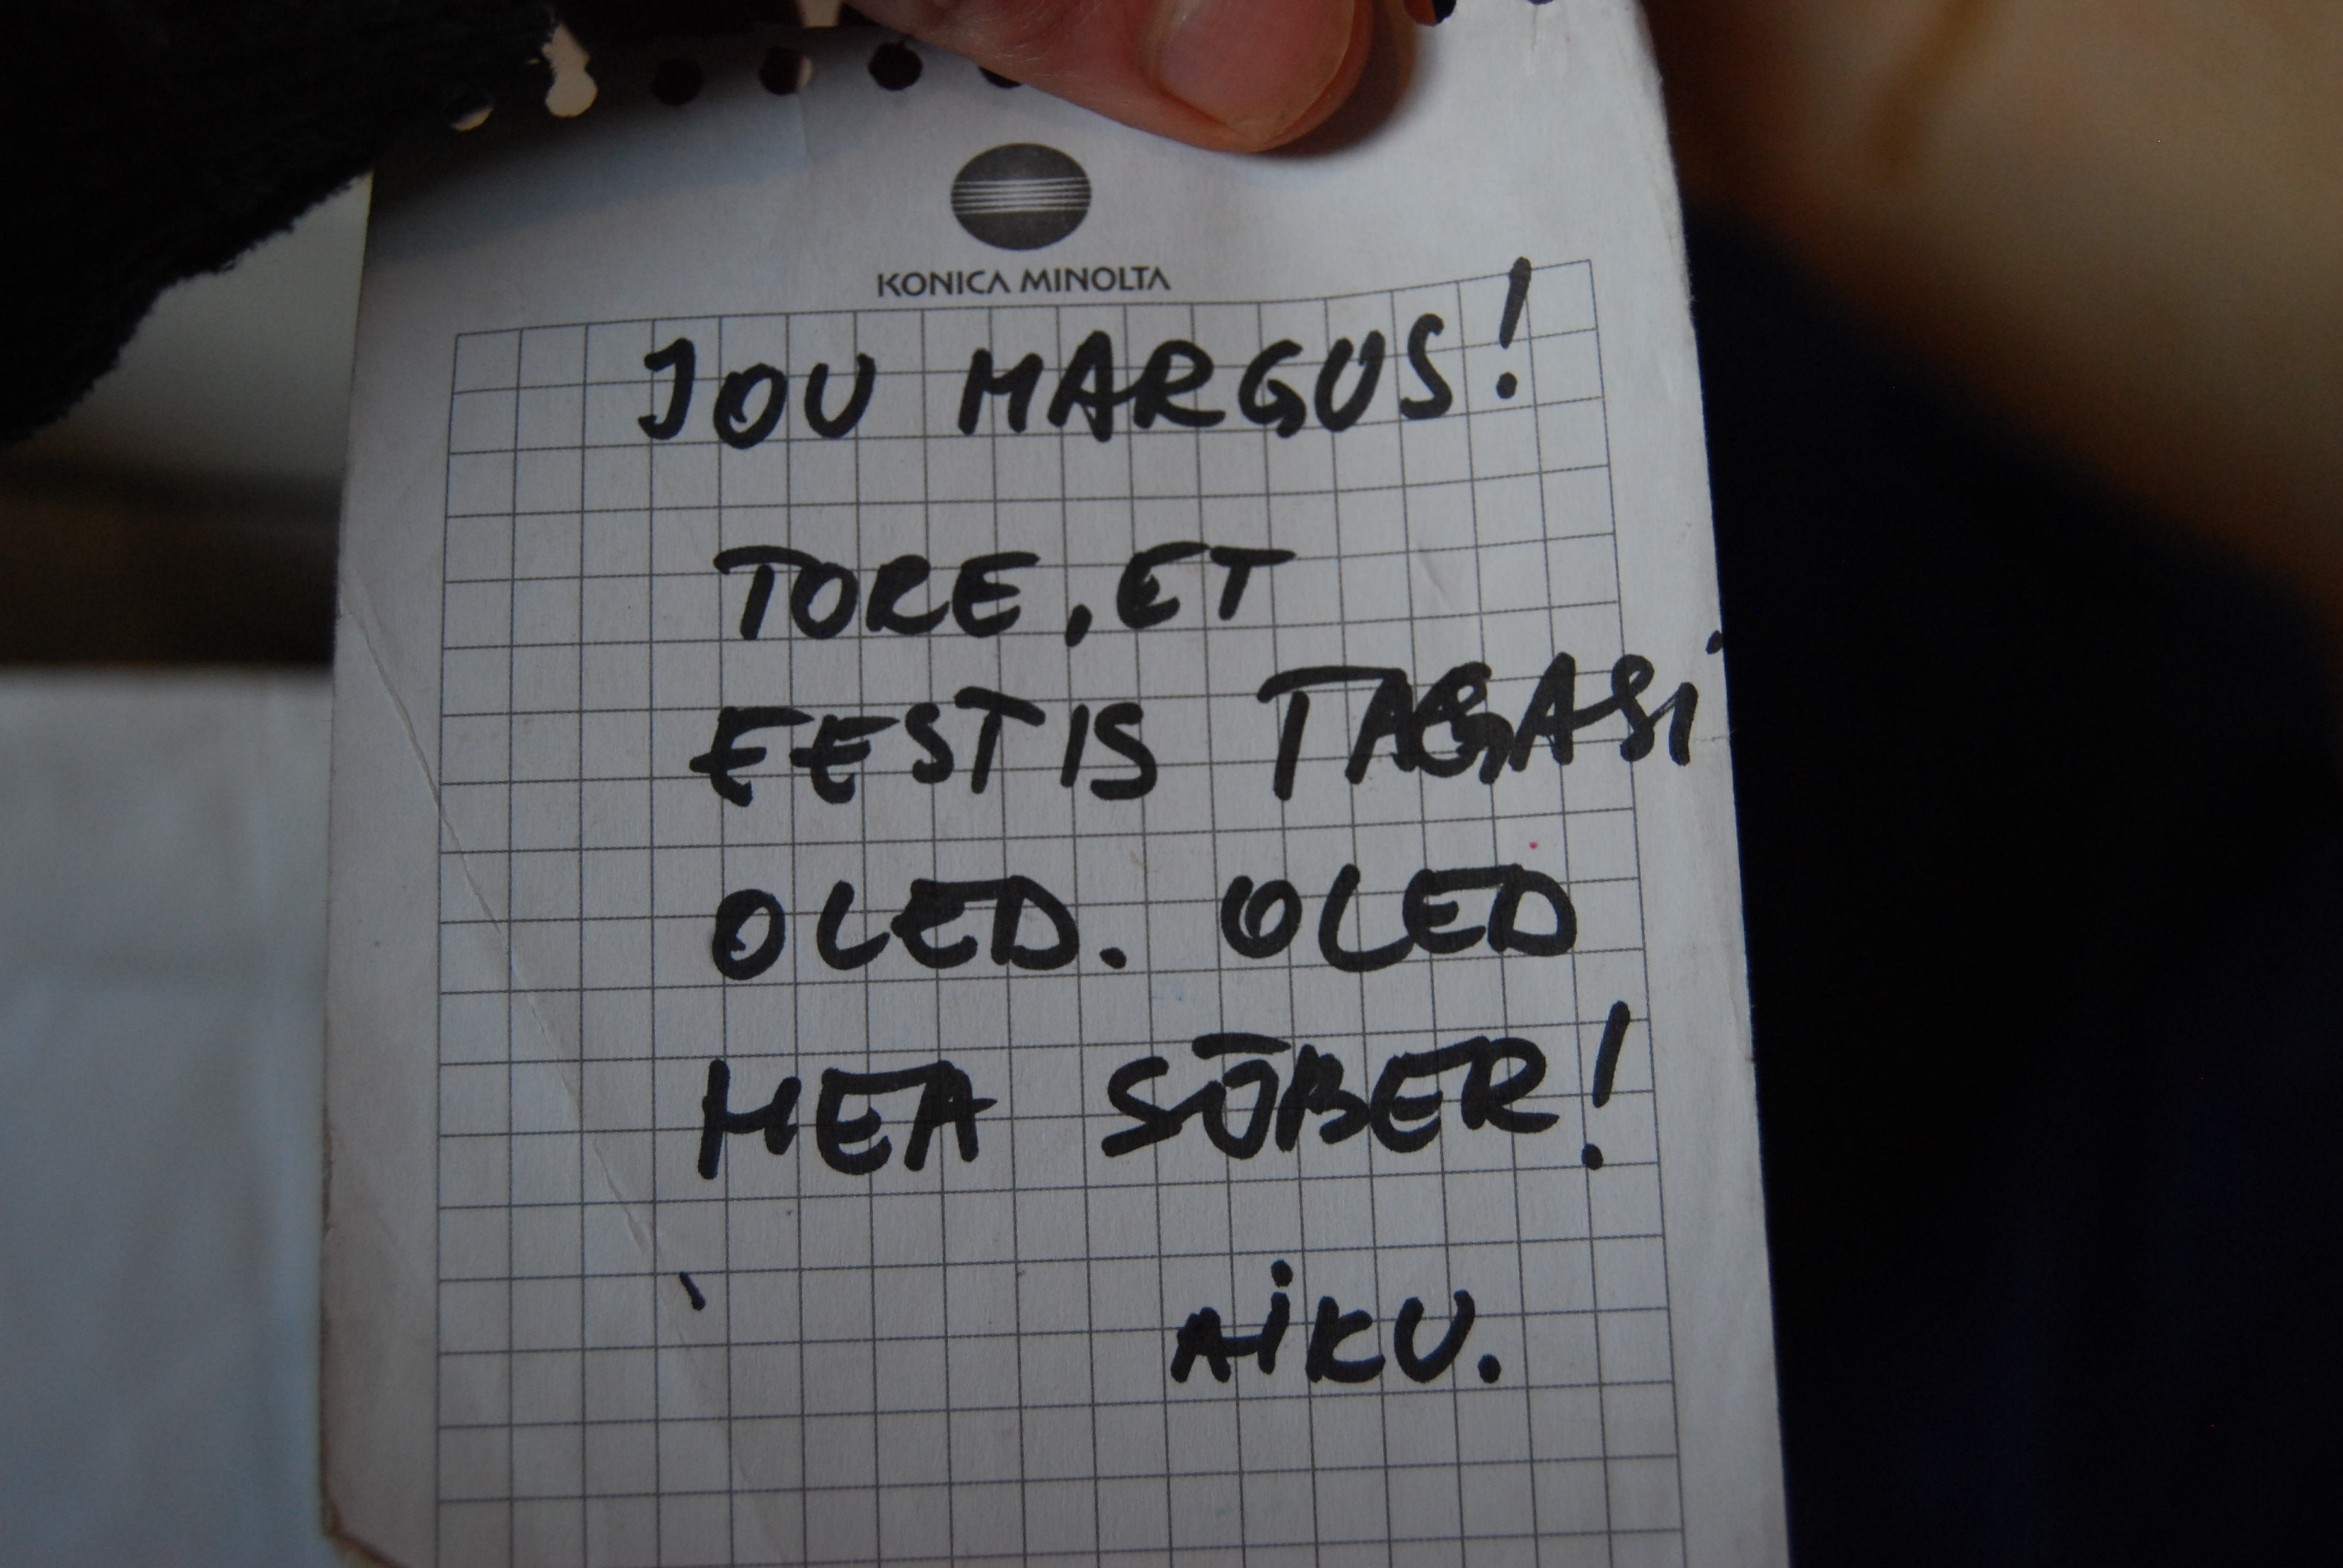 KONICA MINOLTA
JOU MARGUS!
TORE, ET
EESTIS TAGASI
OLED. OLED
HEA SÕBER!
AiKU.